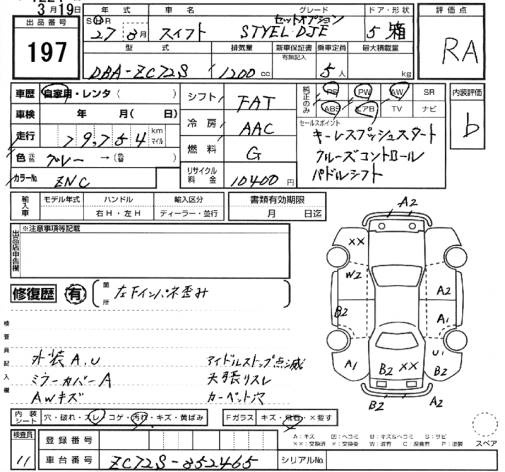 3月19日
出品番号
197
年式 車名 グレード ドア・形状
セットオプション
S H R 27年 8月 スイフト STYEL DJE 5 箱
型式 排気量 新車保証書 乗車定員 最大積載量
有無記入
DBA-ZC72S 1200cc 5人 kg
評価点
RA
車歴 自家用・レンタ( )
車検 年 月( 日)
走行 79,754 km マイル
色 グレー → (色替 )
カラーNo ZNC
シフト FAT
冷房 AAC
燃料 G
リサイクル料金 10400円
純正のみ
PS PW AW SR
ABS エアB TV ナビ
セールスポイント
キーレスプッシュスタート
クルーズコントロール
パドルシフト
内装評価
b
輸入車 モデル年式 ハンドル 輸入区分
右H・左H ディーラー・並行
書類有効期限
月 日迄
出品店申告欄
※注意事項等記載
修復歴 有 箇所
検査員記入欄
外装A.U アイドルストップ点滅
ミラーカバーA 天張リスレ
AWキズ
内装シート 穴・破れ・スレ・コゲ・汚れ・キズ・黄ばみ
Fガラス キズ・飛石・×要す
検査員
11
登録番号
車台番号 ZC72S-852465
シリアルNo
A2
XX
W2 A2
B2 A1
A1 B2 XX U1 B2
B2 A2
スペア